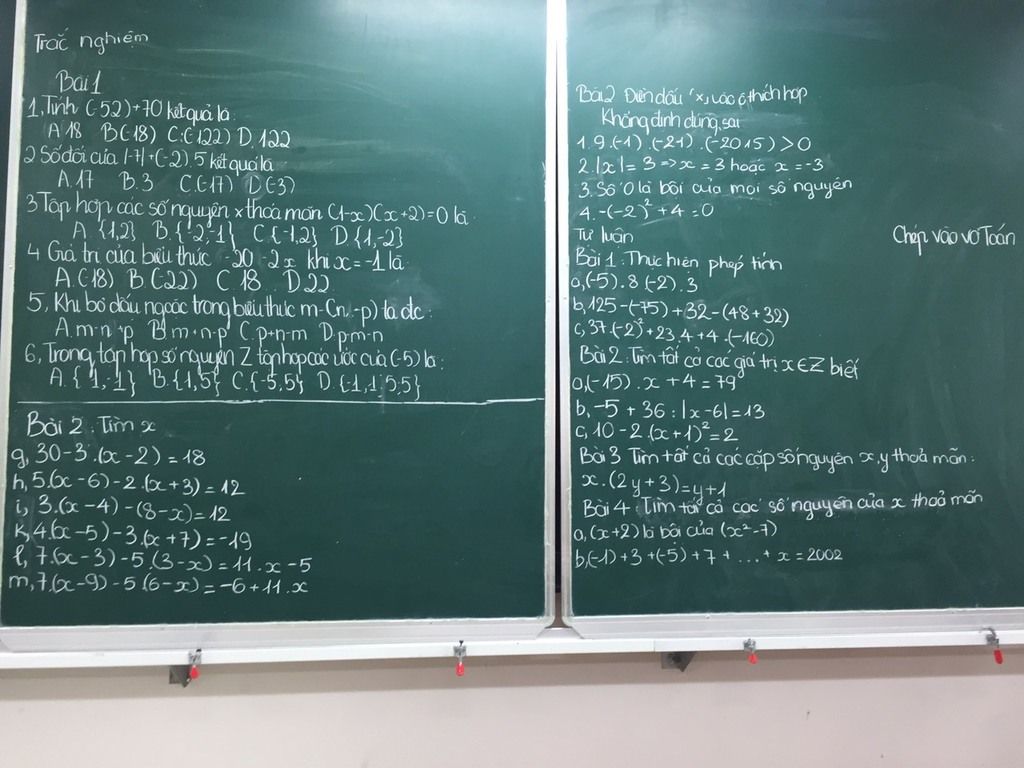 Trắc nghiệm
Bài 1
1, Tính (-52)+70 kết quả là:
A.18 B(-18) C.(-122) D.122
2 Số đối của |-7|+(-2).5 kết quả là
A.17 B.3 C.(-17) D.(-3)
3 Tập hợp các số nguyên x thoả mãn (1-x)(x+2)=0 là:
A {1,2} B.{-2,-1} C.{-1,2} D.{1,-2}
4 Giá trị của biểu thức -20 -2x khi x=-1 là
A.(-18) B(-22) C 18 D.22
5, Khi bỏ dấu ngoặc trong biểu thức m-(n-p) ta đc:
A.m-n+p B m+n-p C.p+n-m D.p-m-n
6, Trong tập hợp số nguyên Z tập hợp các ước của (-5) là:
A.{1,-1} B.{1,5} C.{-5,5} D.{-1,1,5,-5}
Bài 2: Tìm x
g, 30-3.(x-2)=18
h, 5.(x-6)-2.(x+3)=12
i, 3.(x-4)-(8-x)=12
k, 4.(x-5)-3.(x+7)=-19
l, 7.(x-3)-5.(3-x)=11.x-5
m, 7.(x-9)-5.(6-x)=-6+11.x
Bài 2 Điền dấu "x" vào ô thích hợp
Khẳng định đúng, sai
1. 9.(-1).(-21).(-2015)>0
2. |x|=3 => x=3 hoặc x=-3
3. Số 0 là bội của mọi số nguyên
4. -(-2)²+4=0
Tự luận
Chép vào vở Toán
Bài 1: Thực hiện phép tính
a, (-5).8.(-2).3
b, 125-(-75)+32-(48+32)
c, 37.(-2)²+23.4+4.(-160)
Bài 2: Tìm tất cả các giá trị x∈Z biết
a, (-15).x+4=79
b, -5+36:|x-6|=13
c, 10-2.(x+1)²=2
Bài 3 Tìm tất cả các cặp số nguyên x,y thoả mãn:
x.(2y+3)=y+1
Bài 4: Tìm tất cả các số nguyên của x thoả mãn
a, (x+2) là bội của (x²-7)
b, (-1)+3+(-5)+7+...+x=2002